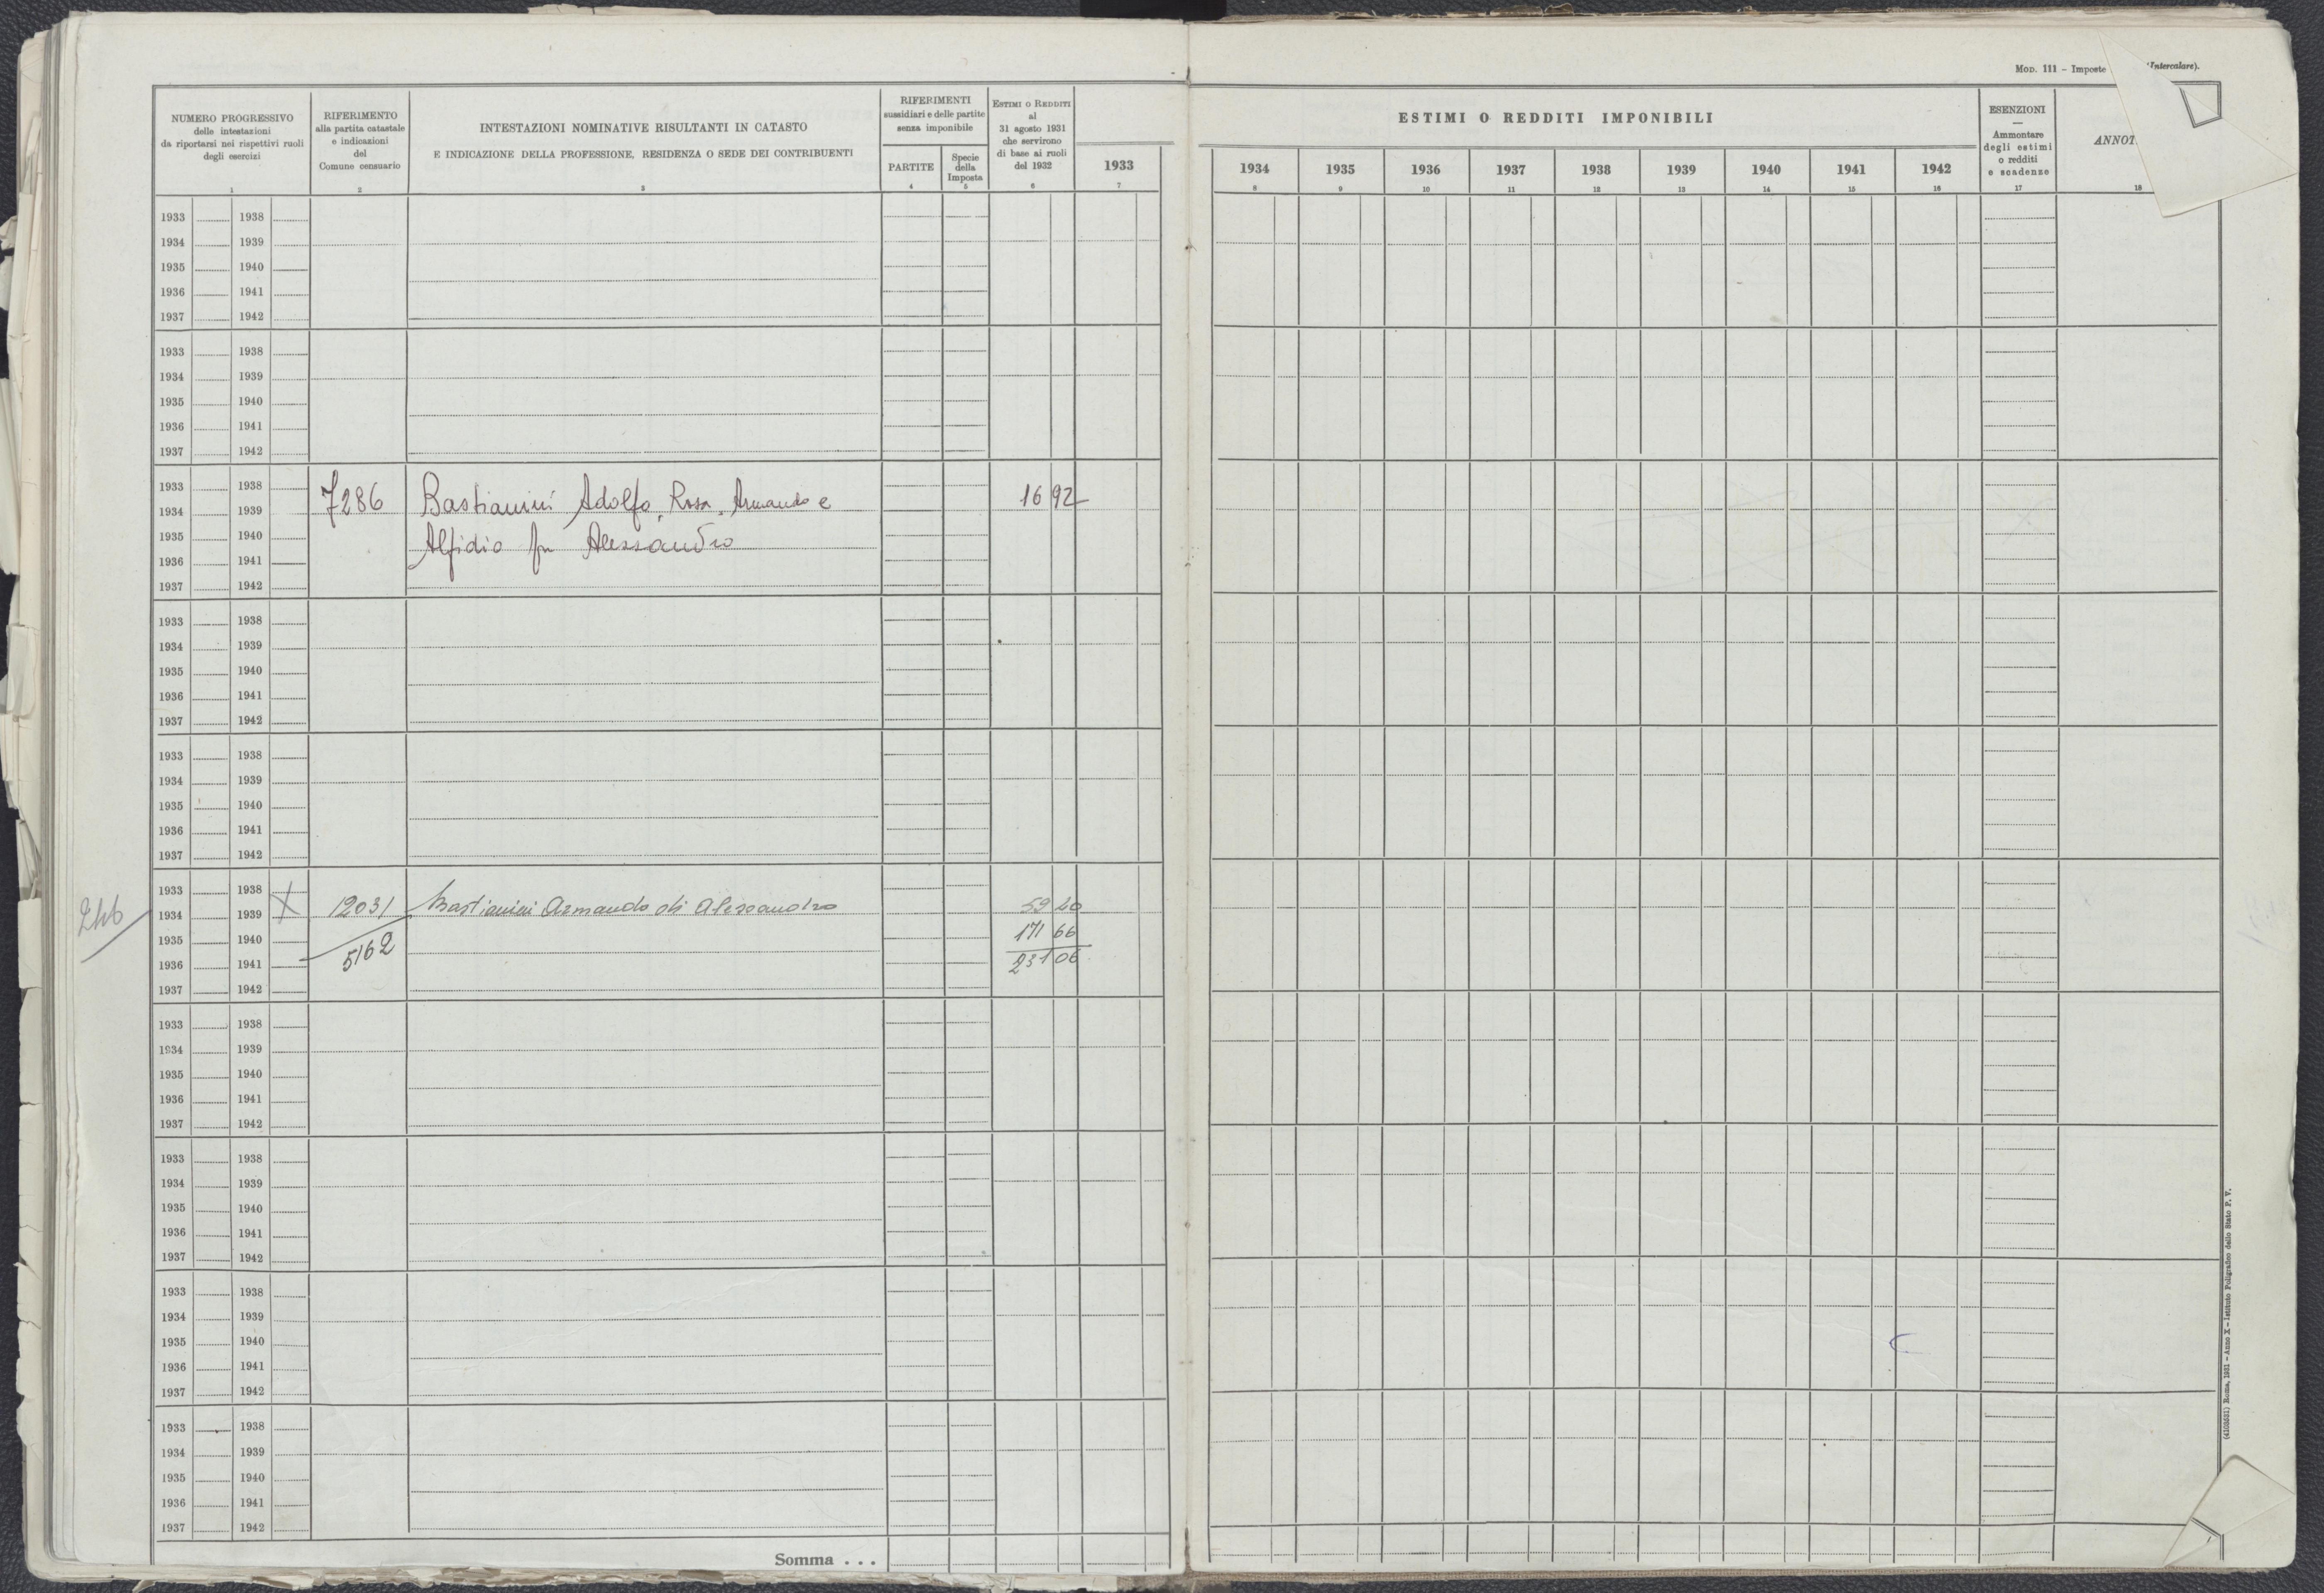 Mod. 111 – Imposte (Intercalare).
NUMERO PROGRESSIVO
delle intestazioni
da riportarsi nei rispettivi ruoli
degli esercizi
1
RIFERIMENTO
alla partita catastale
e indicazioni
del
Comune censuario
2
INTESTAZIONI NOMINATIVE RISULTANTI IN CATASTO
E INDICAZIONE DELLA PROFESSIONE, RESIDENZA O SEDE DEI CONTRIBUENTI
3
RIFERIMENTI
sussidiari e delle partite
senza imponibile
PARTITE
4
Specie
della
Imposta
5
Estimi o Redditi
al
31 agosto 1931
che servirono
di base ai ruoli
del 1932
6
1933
7
ESTIMI O REDDITI IMPONIBILI
1934 1935 1936 1937 1938 1939 1940 1941 1942
8 9 10 11 12 13 14 15 16
ESENZIONI
—
Ammontare
degli estimi
o redditi
e scadenze
17
18
1933 1938
1934 1939
1935 1940
1936 1941
1937 1942
1933 1938
1934 1939
1935 1940
1936 1941
1937 1942
1933 1938
1934 1939 7286 Bastianini Adolfo, Rosa, Armando e 16 92
1935 1940 Alfidio fu Alessandro
1936 1941
1937 1942
1933 1938
1934 1939
1935 1940
1936 1941
1937 1942
1933 1938
1934 1939
1935 1940
1936 1941
1937 1942
1933 1938
1934 1939 X 12031 Bastianini Armando di Alessandro 59 40
1935 1940 5162 171 66
1936 1941 231 06
1937 1942
1933 1938
1934 1939
1935 1940
1936 1941
1937 1942
1933 1938
1934 1939
1935 1940
1936 1941
1937 1942
1933 1938
1934 1939
1935 1940
1936 1941
1937 1942
1933 1938
1934 1939
1935 1940
1936 1941
1937 1942
Somma . . .
(4103631) Roma, 1931 – Anno X – Istituto Poligrafico dello Stato P. V.